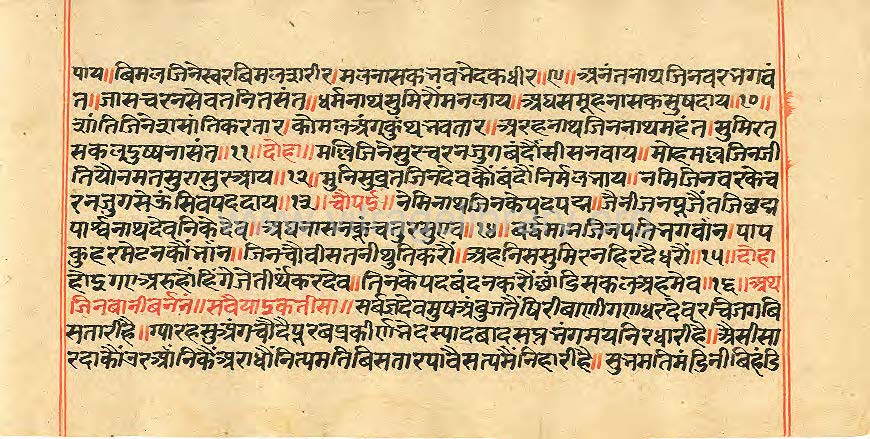 पाय॥बिमलजिनेस्वरबिमलशरीर।मलनासकनवनेदकधीर॥९॥अनंतनाथजिनवरभगवं
त॥जासचरनसेवतनितसंत॥धर्मनाथसुमिरौंमनलाय॥अघसमूहनासकसुषदाय॥१०॥
शांतिजिनेशसांतिकरतार।कोमलअंगकुंथुअवतार॥अरहनाथजिननाथमहंत।सुमिरत
सकलदुष्यनासंत॥११॥दोहा॥मल्लिजिनेसुरचरनजुगबंदौंसीसनवाय॥मोहमल्लजिनजी
तियौनमतसुरासुरआय॥१२॥मुनिसुव्रतजिनदेवकौंबंदौंनिर्मलभाय॥नमिजिनवरकेच
रनजुगसेऊंसिवपददाय॥१३॥चौपई॥नेमिनाथजिनकेपदपद्म॥जैनीजनपूजैंतजिछद्म
पार्श्वनाथदेवनिकेदेव॥ १४॥बर्द्धमानजिनपतिभगवांन।पाप
कुहरमेटनकौंभांन॥जिनचौवीसतनीथुतिकरौं॥अहनिससुमिरनहिरदैधरौं॥१५॥दोहा
होइगएअरुहोंहिंगेजेतीर्थंकरदेव॥तिनकेपदबंदनकरौंछांडिसकलअहमेव॥१६॥अथ
जिनबानीबर्नन॥सवैयाइकतीसा॥सर्बज्ञदेवमुषअंबुजतैंषिरीबाणीगणधरदेवरचिजगबि
सतारीहै॥ग्यारहसुअंगचौदैपूरबप्रकीर्णभेदस्यादबादसप्तभंगमयनिरधारीहै॥असीसा
रदाकौंउरआंनिकैंअराधौंनित्यमतिबिसतारपावैसत्यमैंनिहारीहै॥सुभमतिमंडिनीबिहंडि